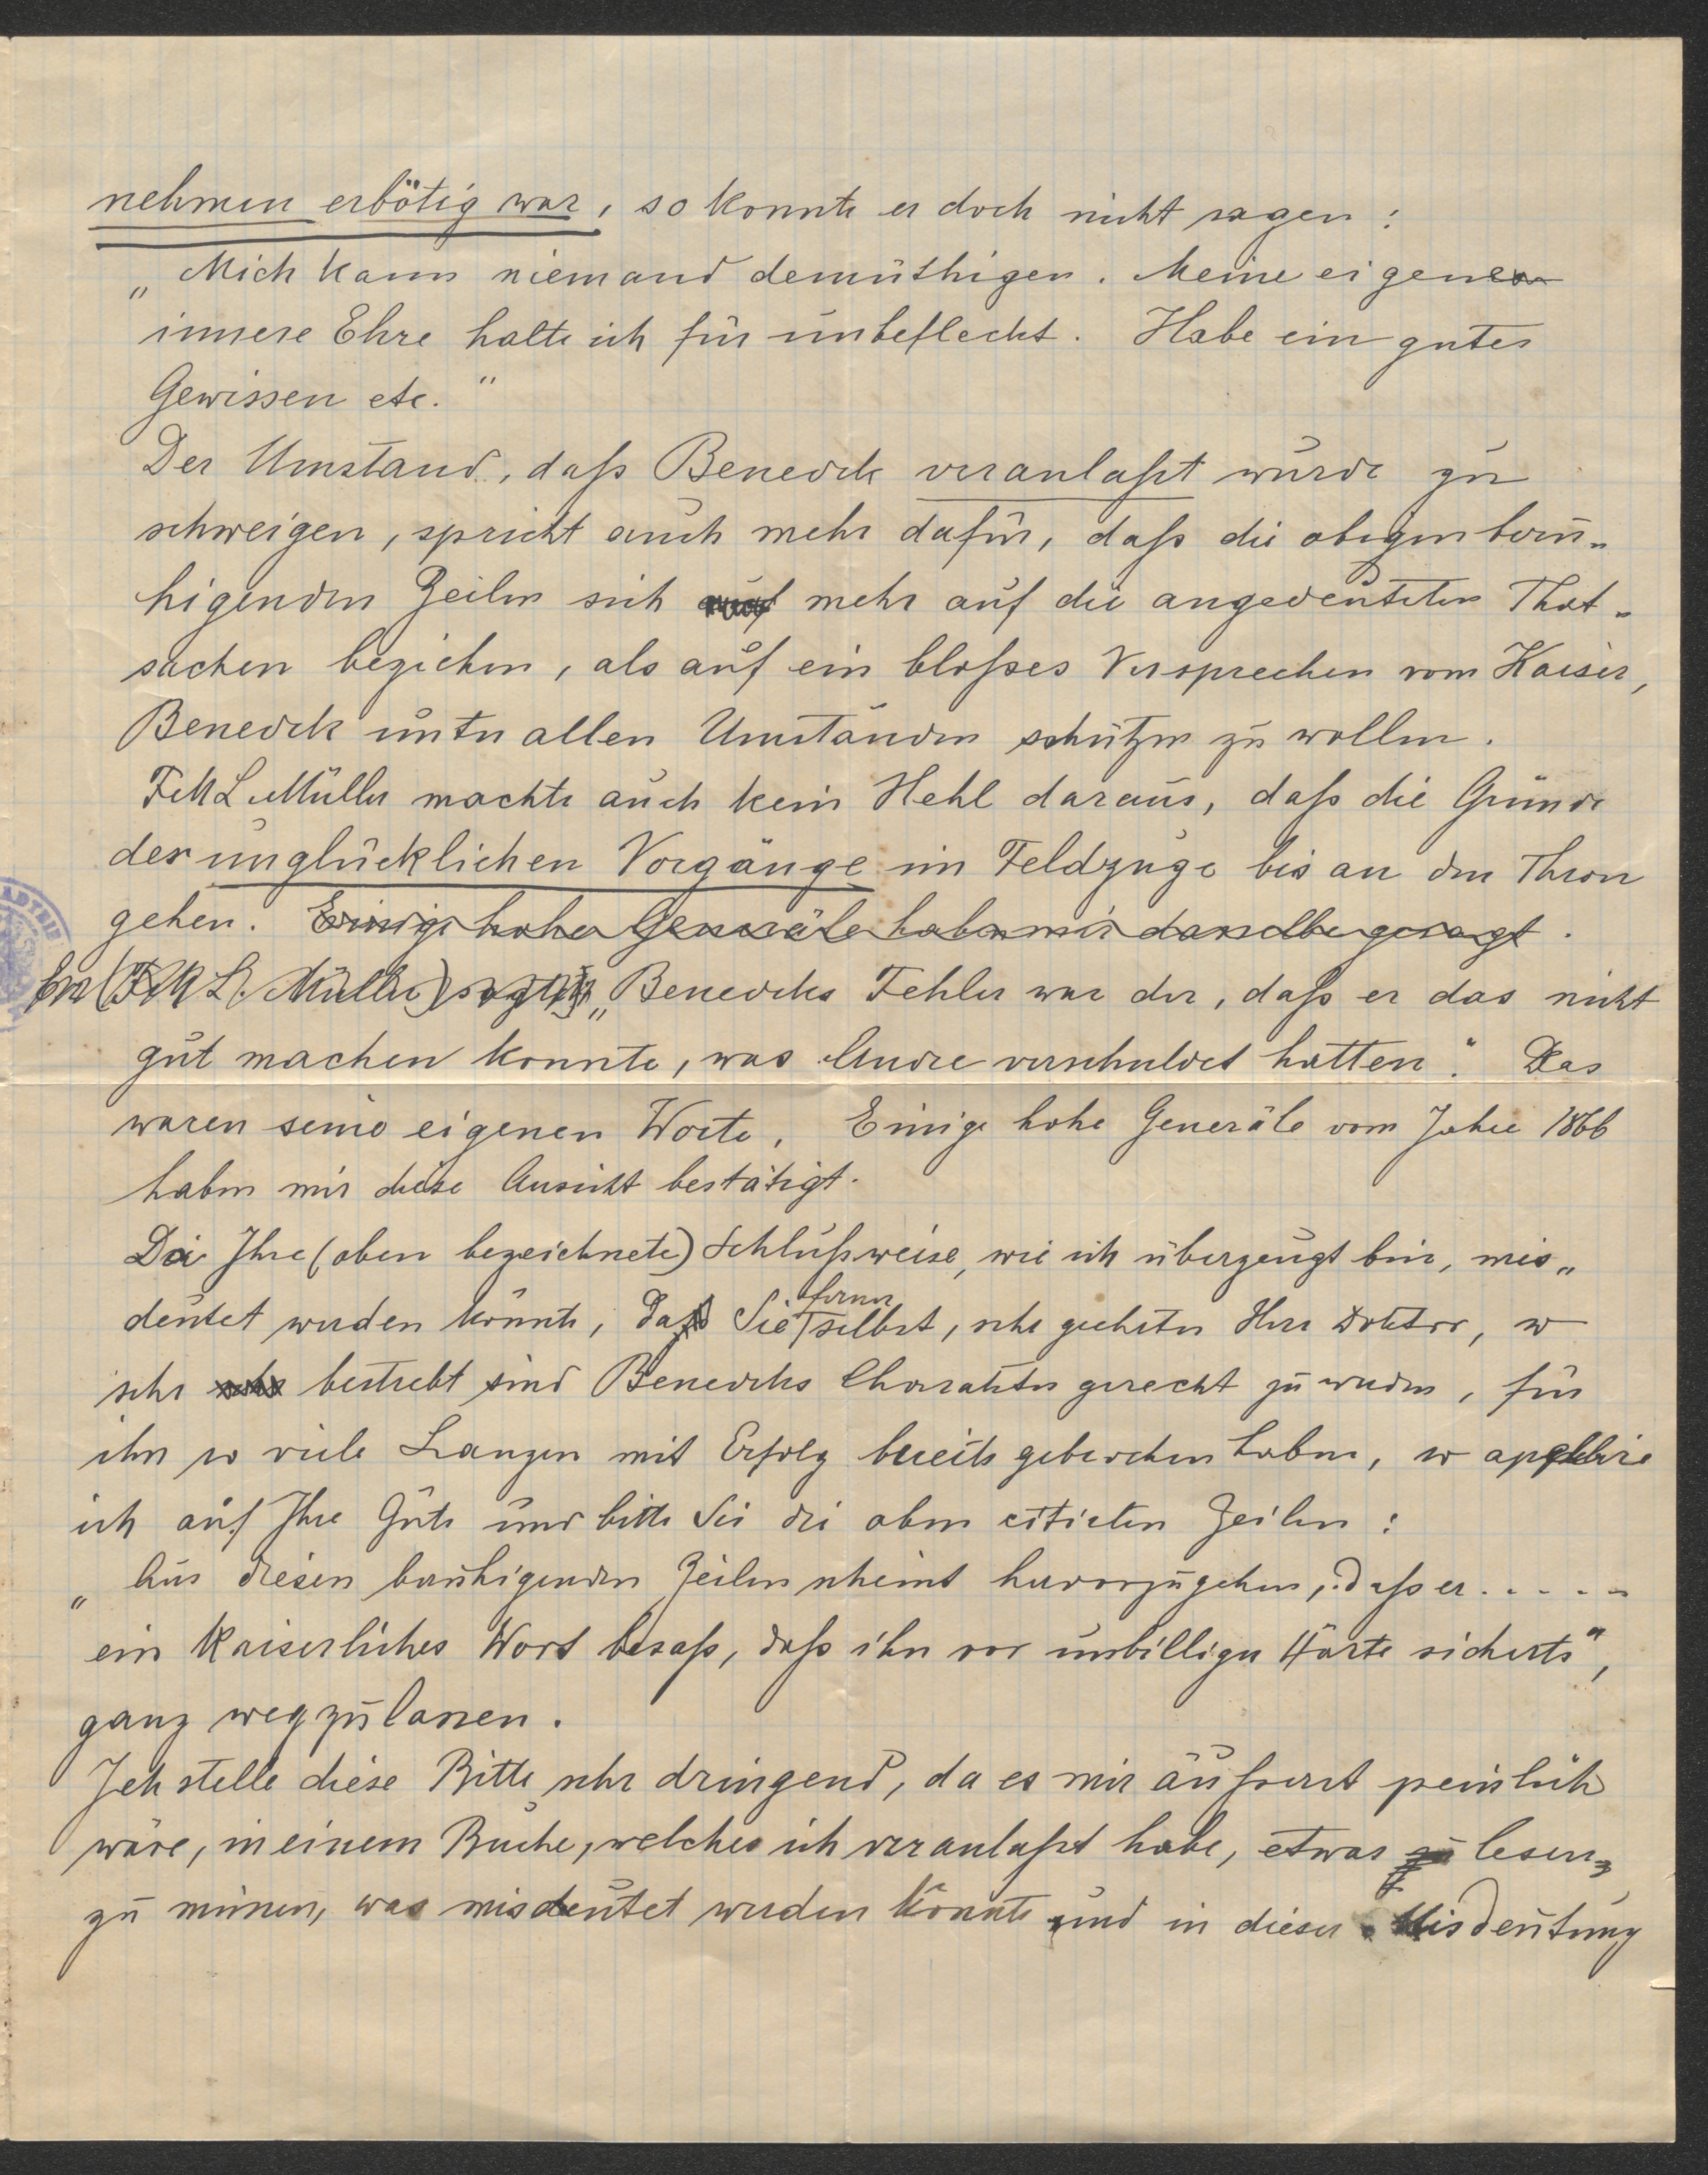 nehmen erbötig war, so konnte er doch nicht sagen:
„Mich kann niemand demüthigen. Meine eigene
innere Ehre halte ich für unbefleckt. Habe ein gutes
Gewissen etc."
Der Umstand, daß Benedek veranlaßt wurde zu
schweigen, spricht auch mehr dafür, daß die obigen beru-
higenden Zeilen sich auf mehr auf die angedeuteten That-
sachen beziehen, als auf ein bloßes Versprechen vom Kaiser,
Benedek unter allen Umständen schützen zu wollen.
FML Müller machte auch kein Hehl daraus, daß die Gründe
der unglücklichen Vorgänge im Feldzuge bis an den Thron
gehen. Einige hohe Generäle haben mir dasselbe gesagt.
Er (FML. Müller) sagte: „Benedeks Fehler war der, daß er das nicht
gut machen konnte, was Andre verschuldet hatten." Das
waren seine eigenen Worte. Einige hohe Generäle vom Jahre 1866
haben mir diese Ansicht bestätigt.
Da Ihre (oben bezeichnete) Schlußweise, wie ich überzeugt bin, mis„
deutet werden könnte, Sie ferner selbst, sehr geehrter Herr Doktor, so
sehr bestrebt sind Benedeks Charakter gerecht zu werden, für
ihn so viele Lanzen mit Erfolg bereits gebrochen haben, so appellire
ich auf Ihre Güte und bitte Sie die oben citirten Zeilen:
„Aus diesen beruhigenden Zeilen scheint hervorzugehen, daß er . . . . .
ein kaiserliches Wort besaß, daß ihn vor unbilliger Härte sicherte",
ganz wegzulassen.
Ich stelle diese Bitte sehr dringend, da es mir äußerst peinlich
wäre, in einem Buche, welches ich veranlaßt habe, etwas zu lesen
zu müssen, was misdeutet werden könnte und in dieser Misdeutung